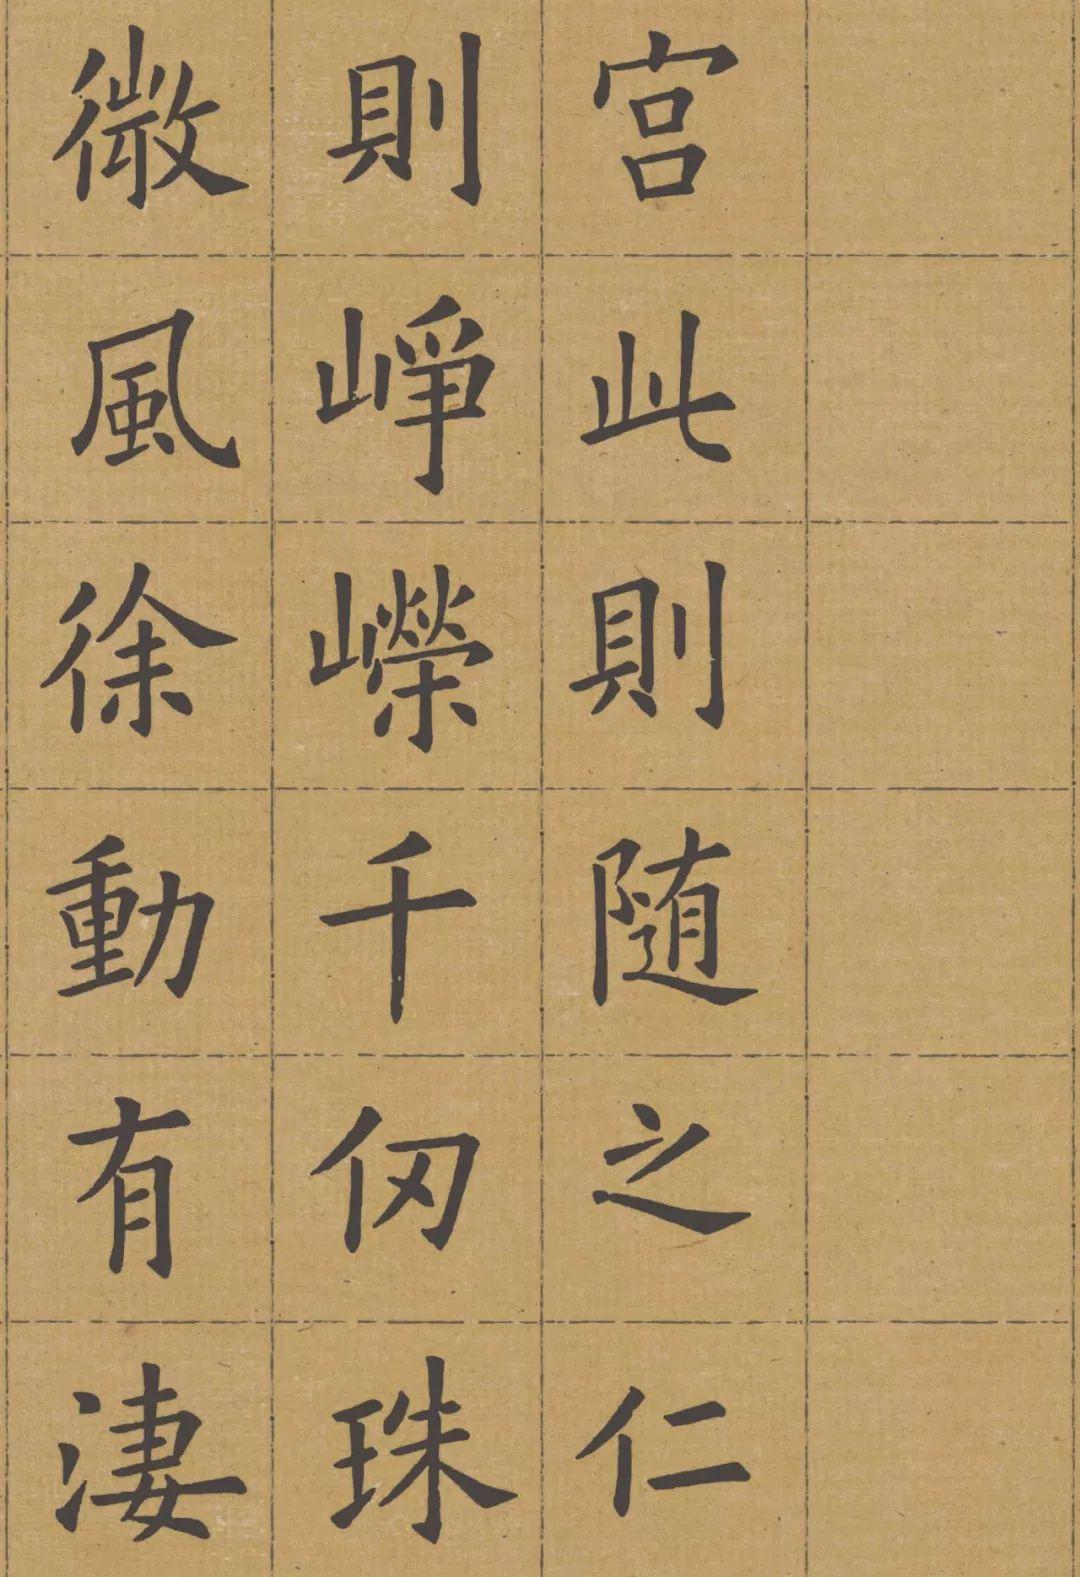 宮此則随之仁
則崢嶸千仞珠
微風徐動有淒